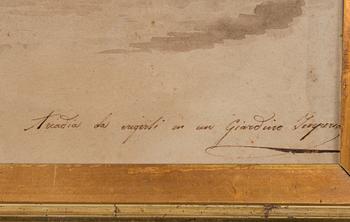 Arcadia da erigersi in un Giardino